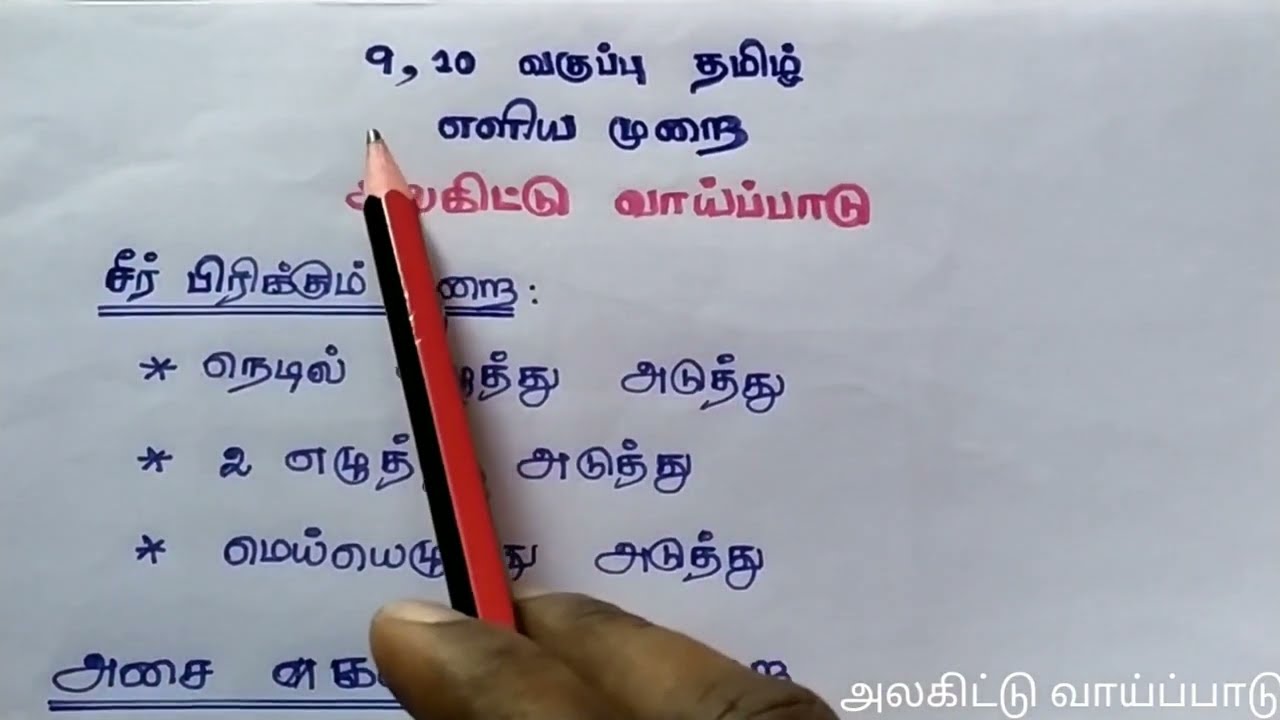 9, 10 வகுப்பு தமிழ்
எளிய முறை
அலகிட்டு வாய்ப்பாடு
சீர் பிரிக்கும் முறை :
* நெடில் எழுத்து அடுத்து
* 2 எழுத்து அடுத்து
* மெய்யெழுத்து அடுத்து
அசை
அலகிட்டு வாய்ப்பாடு